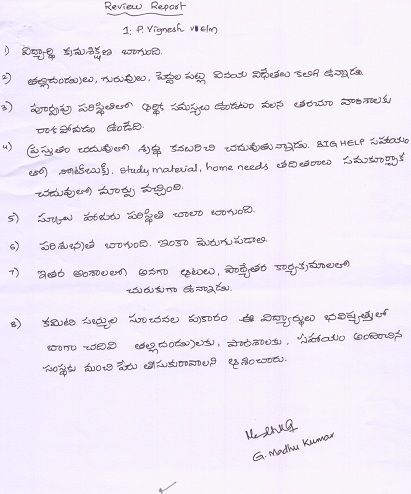 Review Report
1. P. Vignesh VII c/m
1) విద్యార్థి క్రమశిక్షణ బాగుంది.
2) తల్లిదండ్రులు, గురువులు, పెద్దల పట్ల వినయ విధేతలు కలిగి ఉన్నాడు.
3) పూర్వపు పరిస్థితిలో ఆర్థిక సమస్యలు ఉండటం వలన తరచూ పాఠశాలకు
రాకపోవడం ఉండేది.
4) ప్రస్తుతం చదువులో శ్రద్ధ కనబరిచి చదువుతున్నాడు. BIG HELP సహాయం
తో నోట్‌బుక్స్, study material, home needs తదితరాలు సమకూర్చాక
చదువులో మార్పు వచ్చింది.
5) స్కూలు హాజరు పరిస్థితి చాలా బాగుంది.
6) పరిశుభ్రత బాగుంది. ఇంకా మెరుగుపడాలి.
7) ఇతర అంశాలలో అనగా ఆటలు, పాఠ్యేతర కార్యక్రమాలలో
చురుకుగా ఉన్నాడు.
8) కమిటి సభ్యుల సూచనల ప్రకారం ఈ విద్యార్థులు భవిష్యత్తులో
బాగా చదివి తల్లిదండ్రులకు, పాఠశాలకు, సహాయం అందించిన
సంస్థకు మంచి పేరు తీసుకురావాలని ఆశించారు.
G. Madhu Kumar